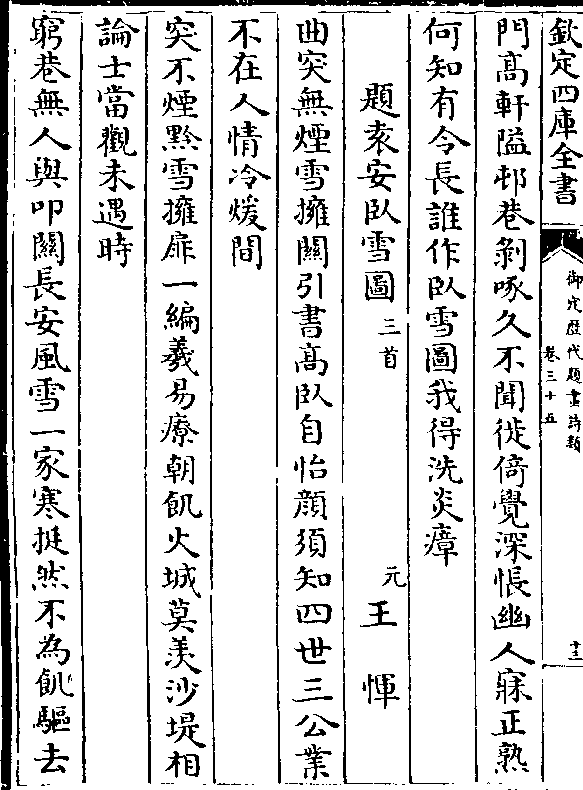 欽定四庫全書
御定歷代題畫詩類
卷三十五
十二
門高軒隘邨巷剝啄久不聞徙倚覺深悵幽人寐正熟
何知有令長誰作臥雪圖我得洗炎瘴
題袁安臥雪圖 三首 元 王惲
曲突無煙雪擁關引書高臥自怡顔須知四世三公業
不在人情冷煖間
突不煙黔雪擁扉一編羲易療朝飢火城莫羨沙堤相
論士當觀未遇時
窮巷無人與叩關長安風雪一家寒挺然不為飢驅去